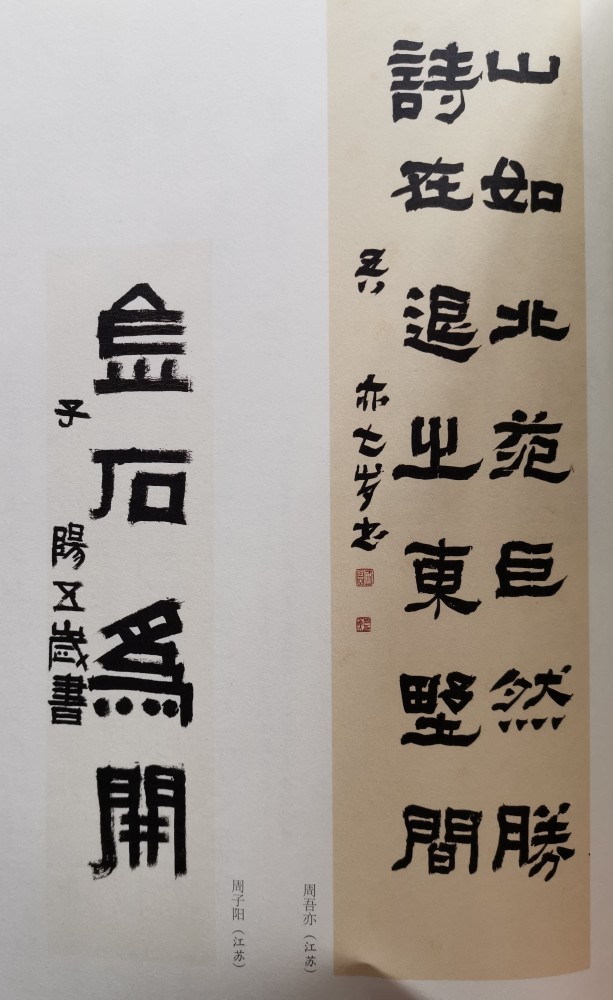 山如北苑巨然勝
詩在退之東野間
吾亦七岁书
周吾亦（江苏）
金石為開
子陽五歲書
周子阳（江苏）